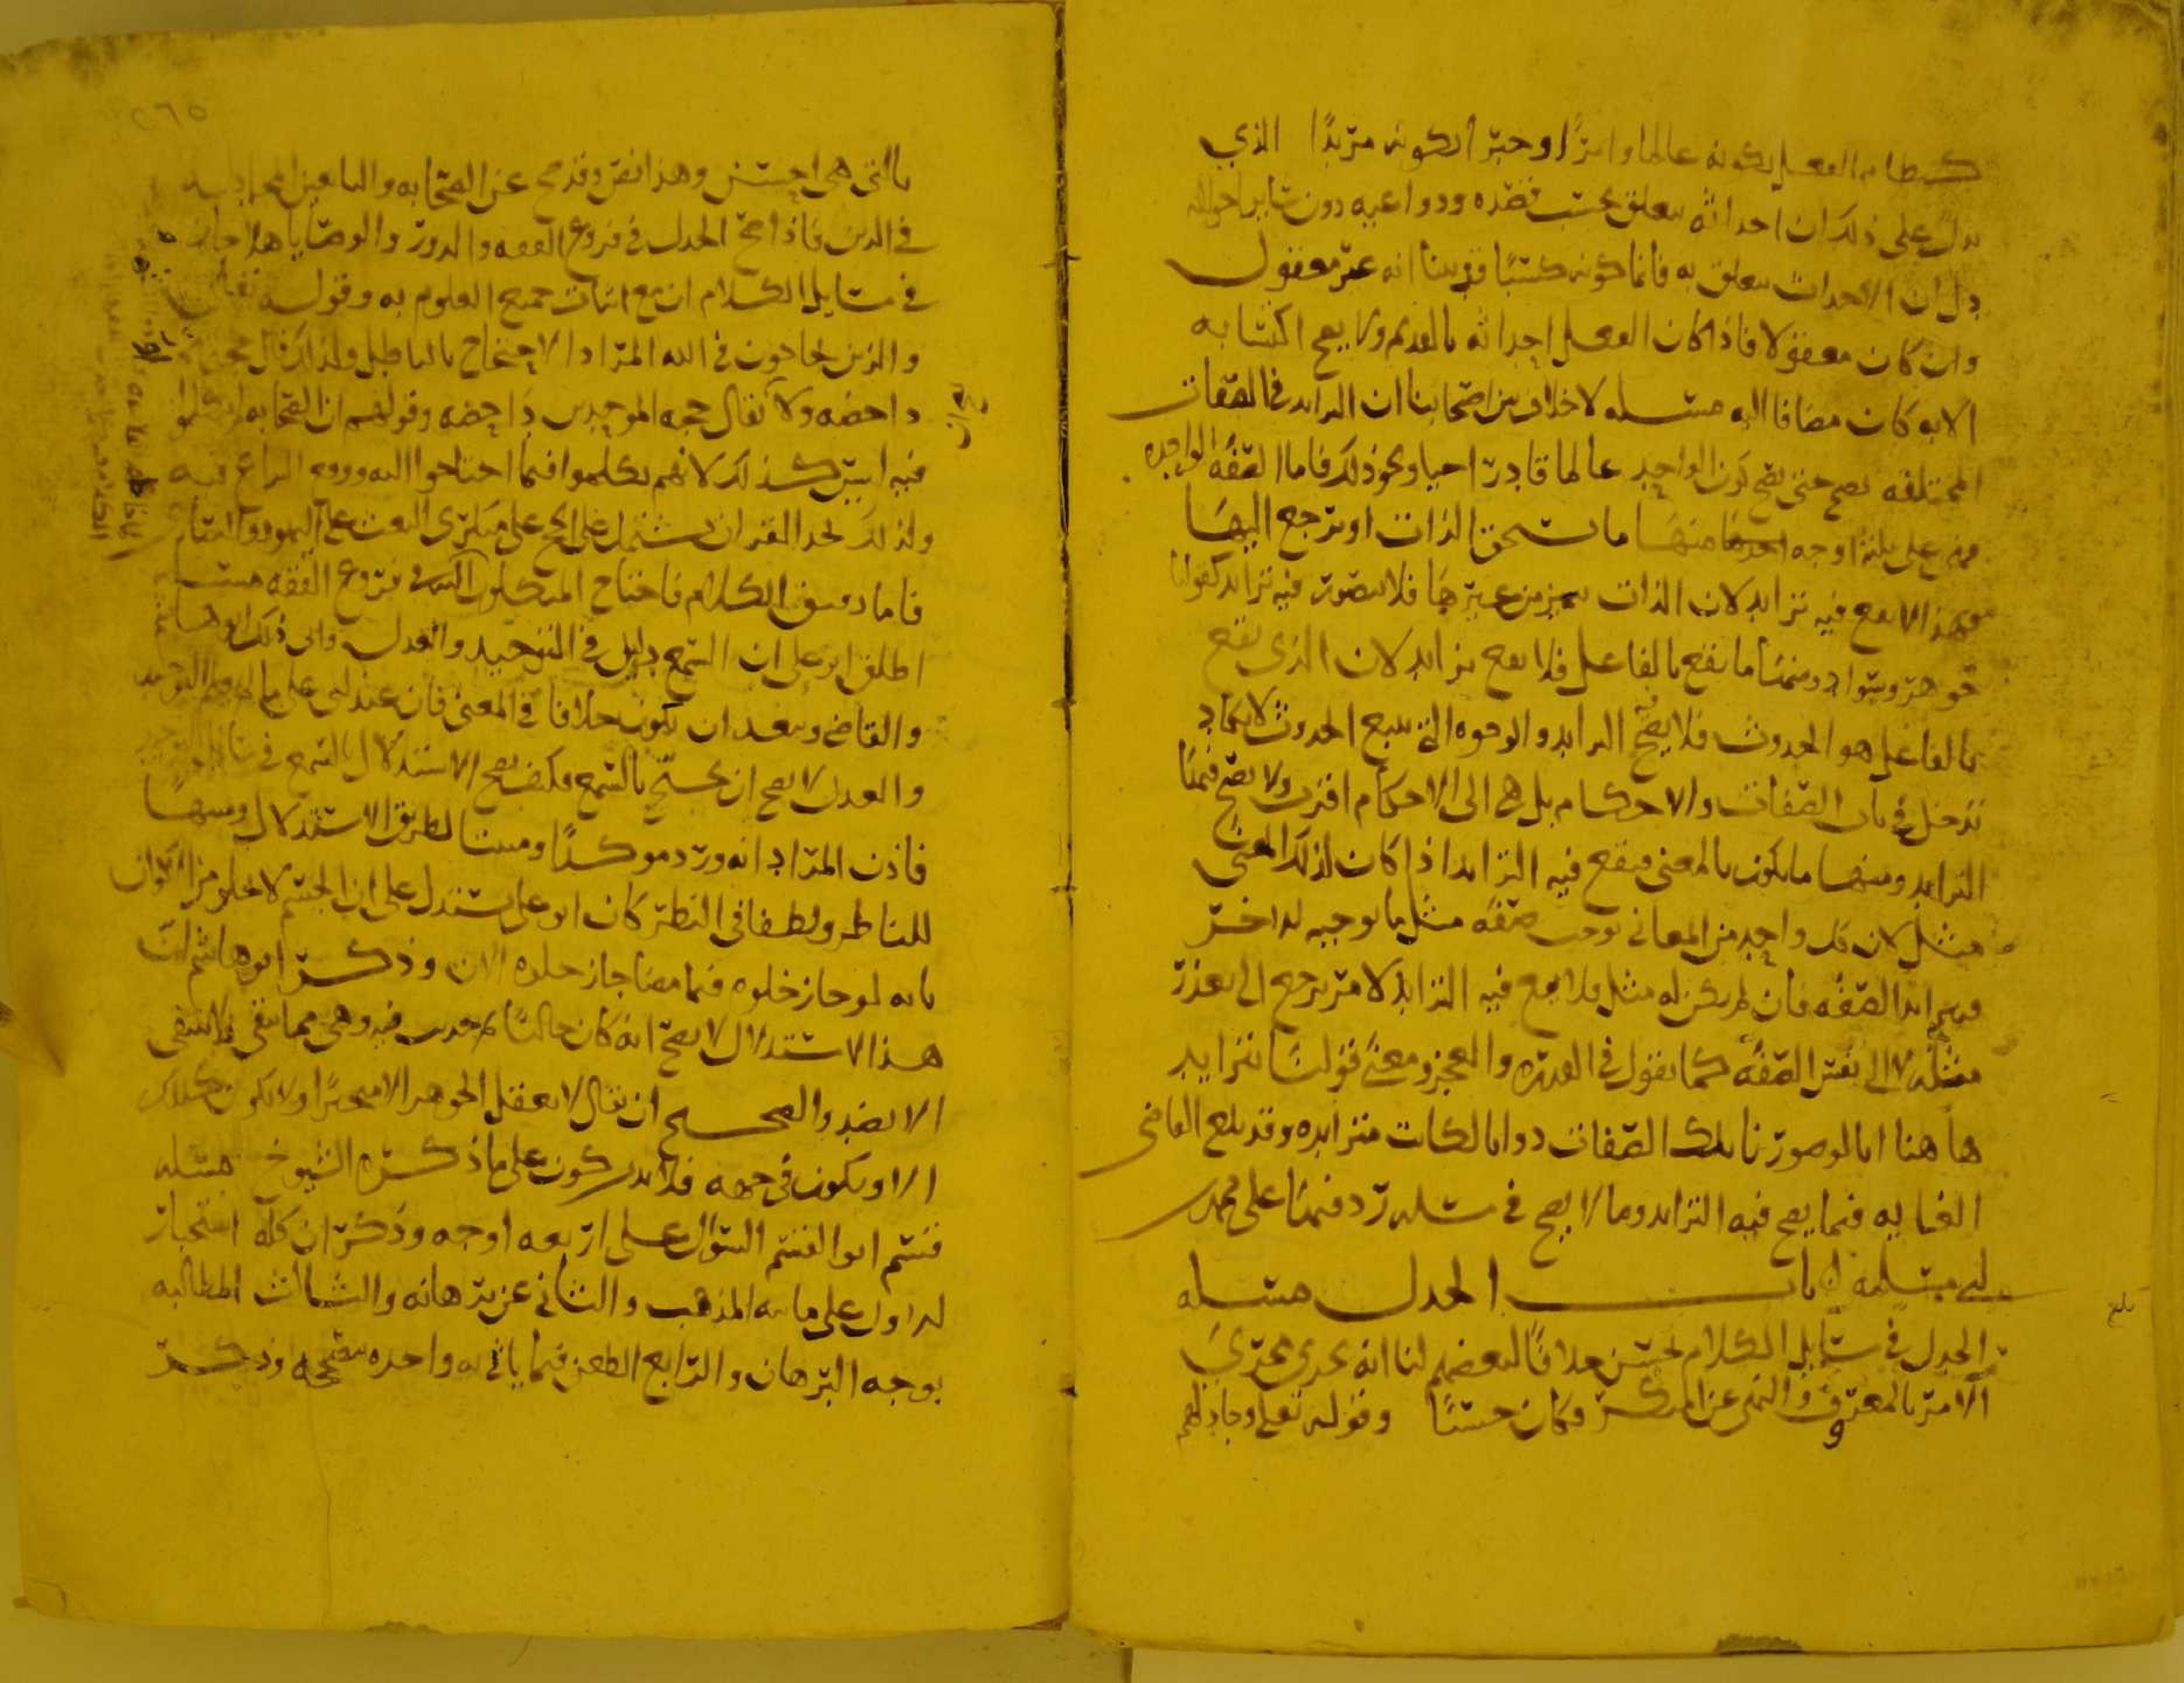 كنظام الفعل بكونه عالما وامرًا وخبرا لكونه مريدًا الذي
يدل على ذلك ان احداثه يتعلق بحسب قصده ودواعيه دون ساير احواله
دل ان الاحداث يتعلق به فاما كونه كسبًا فقد بينا انه غير معقول
وان كان معقولا فاذا كان الفعل احداثه بالقديم ولا يصح اكتسابه
الا به كان مضافا اليه مسله لا خلاف بين اصحابنا ان التزايد في الصفات
المختلفه يصح حتى يصح كون الواحد عالما قادرا حيا ونحو ذلك فاما الصفه الواحده
فهي على ثلثه اوجه احدها منها ما تستحق الذات او ترجع اليها
فهذا لا يصح فيه تزايد لان الذات تتميز من غيرها فلا يتصور فيه تزايد كقولنا
جوهر وسواد ومنها ما يقع بالفاعل فلا يصح تزايد لان الذي يقع
بالفاعل هو الحدوث فلا يصح فيه التزايد والوجوه التي تتبع الحدوث لا تكاد
تدخل في باب الصفات والاحكام بل هي الى الاحكام اقرب ولا يصح فيها
التزايد ومنها ما يكون بالمعنى فيصح فيه التزايد اذا كان لذلك المعنى
مثل لان كل واحد من المعاني توجب صفه مثل ما توجبه لداخر
فيتزايد الصفه فان لم يكن له مثل فلا يصح فيه التزايد لامر يرجع الى تعذر
مثله لا الى نفس الصفه كما نقول في القدره والعجز ومعنى قولنا تتزايد
هاهنا انا لو صورنا تلك الصفات ذواتا لكانت متزايده وقد بلغ القاضي
الغايه فيما يصح فيه التزايد وما لا يصح في مسله رد فيها على محمد
بن مسلمه باب الجدل مسله
الجدل في مسايل الكلام يحسن خلافًا لبعضهم لنا انه يجري مجرى
الامر بالمعروف والنهي عن المنكر فكان حسنًا وقوله تعلى وجادلهم
بلغ
بالتي هي احسن وهذا نص وقد صح عن الصحابه والتابعين المجادله
في الدين فاذا صح الجدل في فروع الفقه والدور والوصايا هلا جاز
في مسايل الكلام ان مع اثبات جميع العلوم به وقوله تعلى
والذين يحاجون في الله المراد الاحتجاج بالباطل ولذلك قال حجتهم
داحضه ولا يقال حجه الموحدين داحضه وقولهم ان الصحابه لم يتكلموا
فيه ليس كذلك لانهم تكلموا فيما احتاجوا اليه ووقع النزاع فيه
ولذلك نجد القران يشتمل على الحجج على منكري البعث على اليهود والنصارى
فاما دقيق الكلام فاحتاج المتكلمون اليه في فروع الفقه مسله
اطلق ابو علي ان السمع دليل في التوحيد والعدل وابى ذلك ابو هاشم
والقاضي ويبعد ان يكون خلافا في المعنى فان عند ابي علي ما لم يعلم التوحيد
والعدل لا يصح ان يحتج بالسمع فكيف يصح الاستدلال بالسمع في
فاذن المراد انه ورد موكدًا ومبينا لطريق الاستدلال ومنبهًا
للناظر ولطفا في النظر كان ابو علي يستدل على ان الجسم لا يخلو من الاكوان
بانه لو جاز خلوه فيما مضا جاز خلوه الان وذكر ابو هاشم ان
هذا الاستدلال لا يصح انه كان خاليًا لم يحدث فيه وهي مما تبقى فلا تنتفي
الا بضد والصحيح ان يقال لا يعقل الجوهر الا متحيزا ولا يكون كذلك
الا ويكون في جهه فلا بد من كون على ما ذكره الشيوخ مسله
قسم ابو القسم السوال على اربعه اوجه وذكر ان كله استخبار
لداول على مايه المذهب والثاني عن برهانه والثالث المطالبه
بوجه البرهان والرابع الطعن فيما ياتي به واحده يصححه وذكر